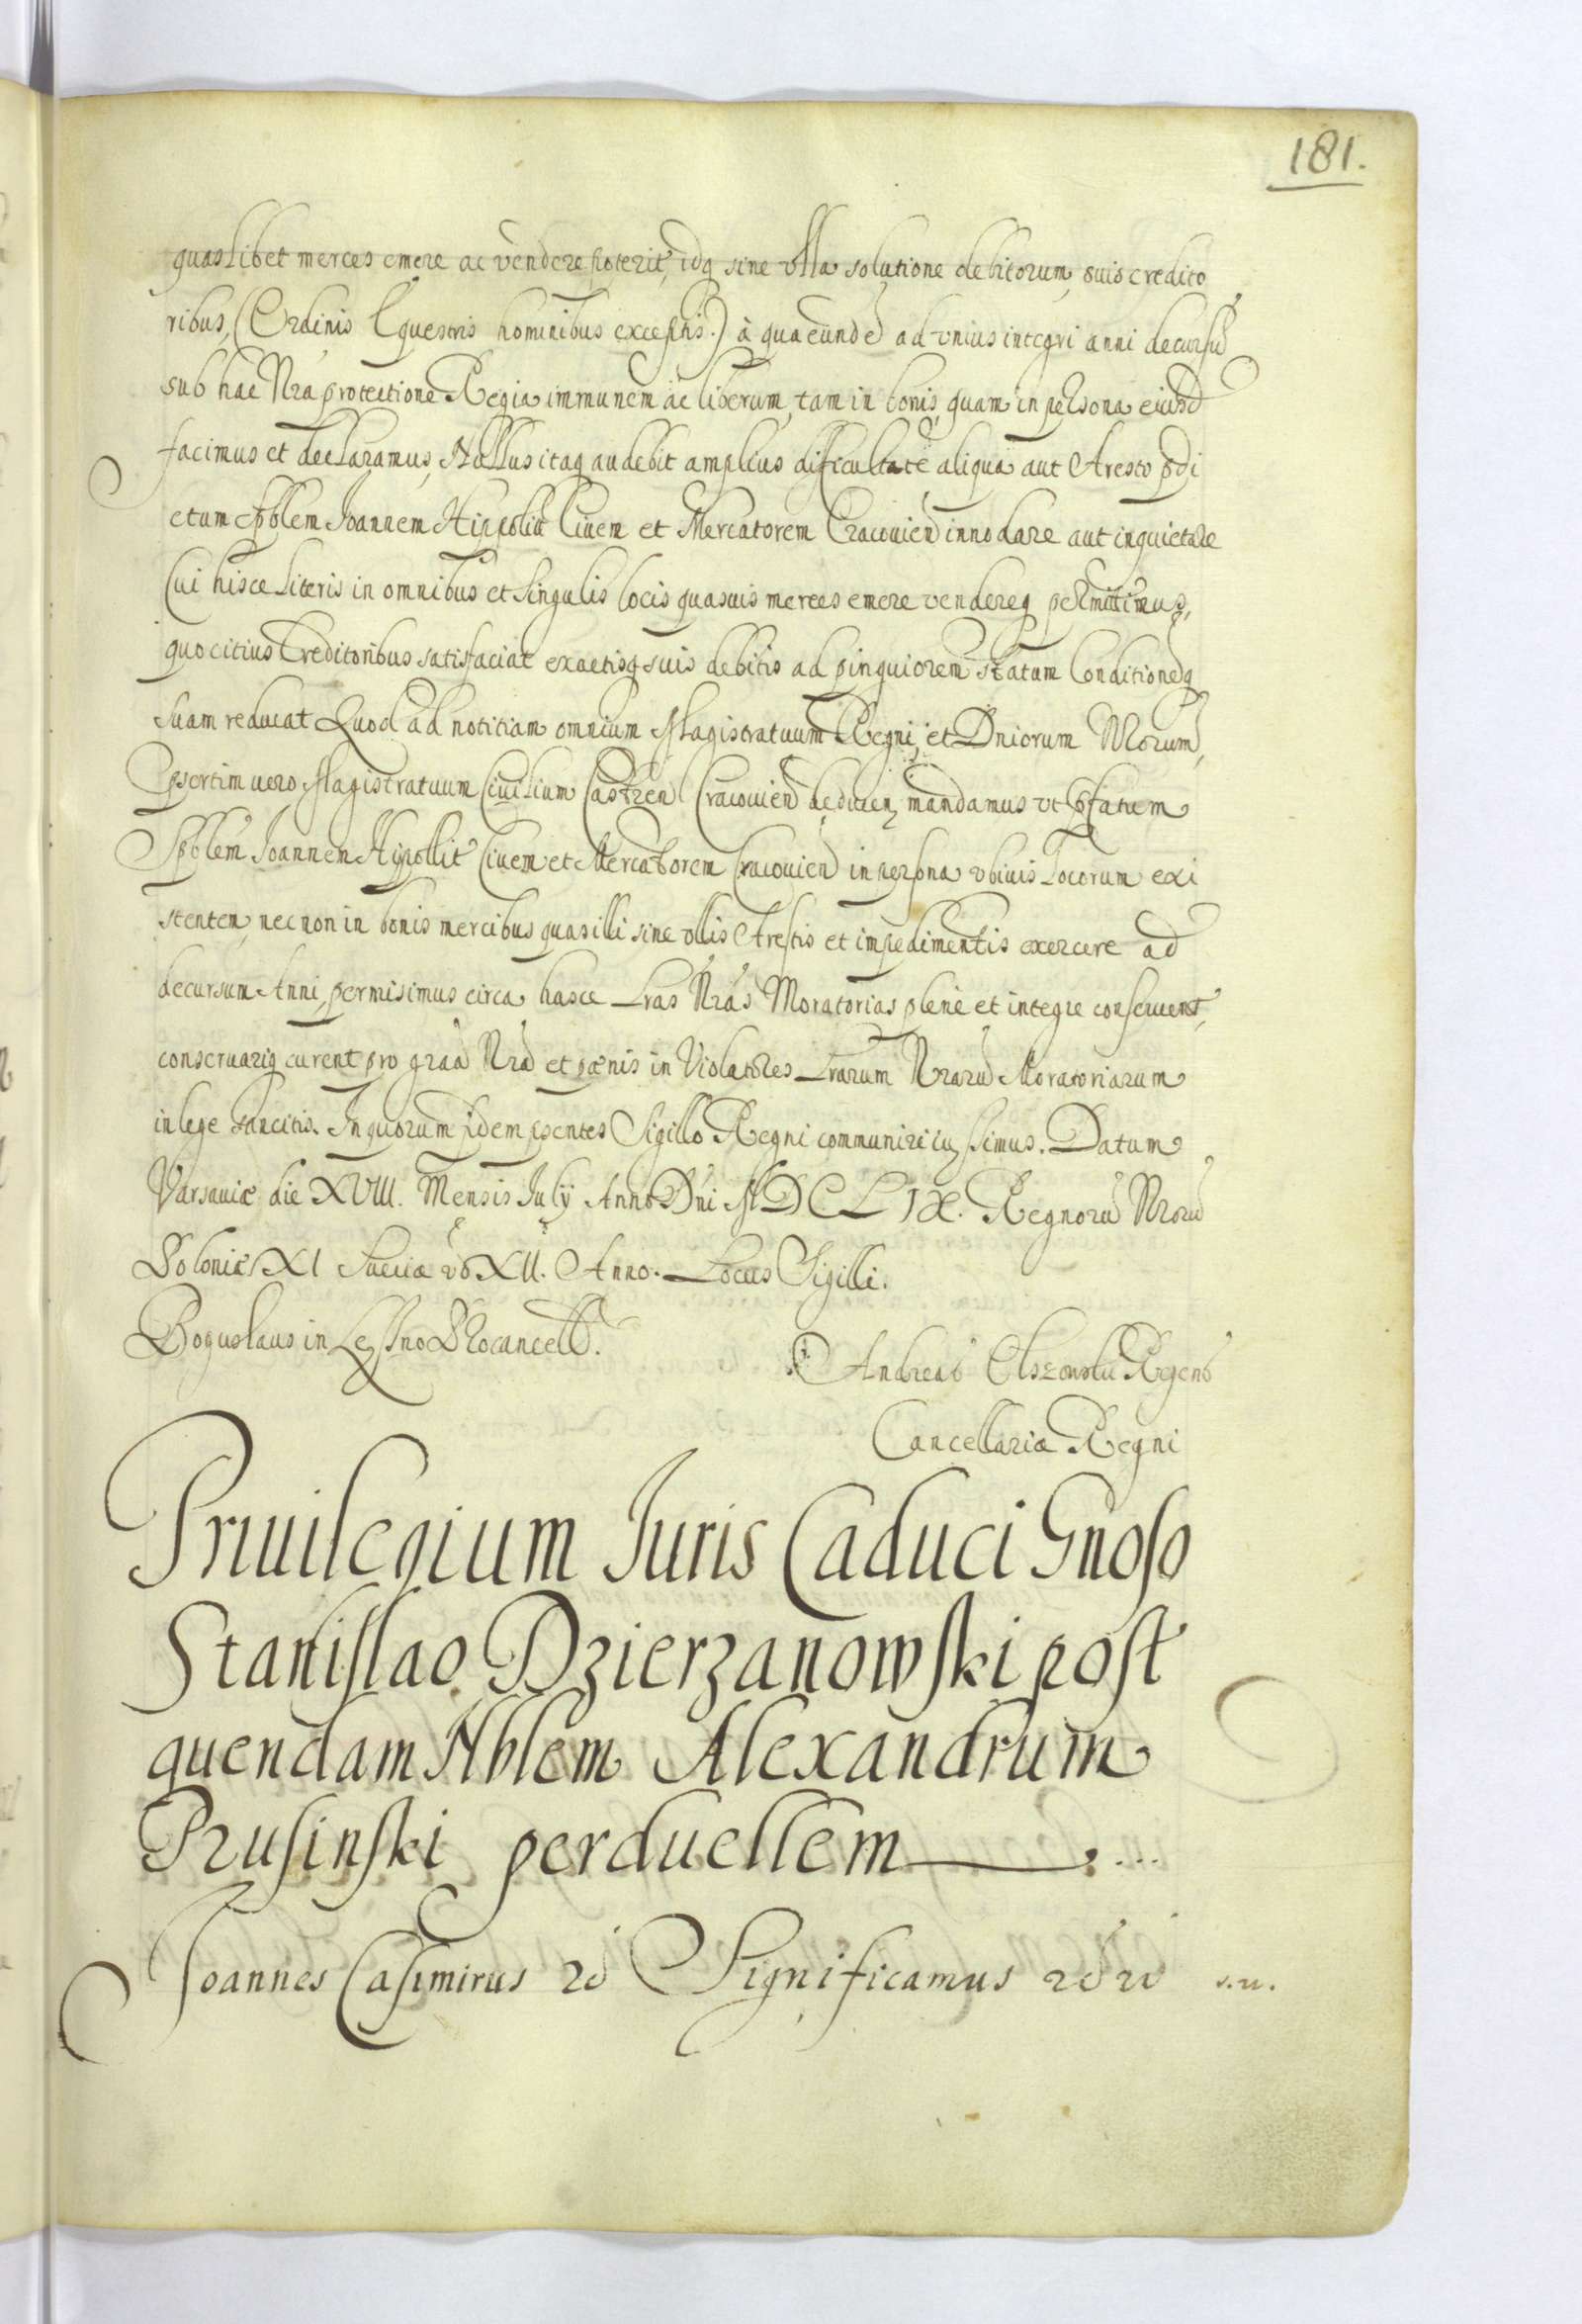 181.
quaslibet merces emere ac vendere poterit, idq sine vlla solutione debitorum, suis credito
ribus, (Ordinis Equestris hominibus exceptis.) à qua eundē ad vnius integri anni decursū
sub hac Nra protectione Regia immunem ac liberum, tam in bonis, quam in persona eiusd
facimus et declaramus, Nullus itaq audebit amplius difficultatē aliqua aut Aresto pdi
ctum Spblem Joannem Hippolit Ciuem et Mercatorem Cracouien innodare aut inquietare
Cui hisce literis in omnibus et Singulis locis quasuis merces emere vendereq permittimus,
quo citius Creditoribus satisfaciat exactisq suis debitis ad pinguiorem statum Conditioneq
suam reducat Quod ad notitiam omnium Magistratuum Regni, et Dniorum Nrorum,
psertim uero Magistratuum Ciuilium Castren Cracouien deducen mandamus vt pfatum
Spblem Joannem Hippollit Ciuem et Mercatorem Cracouien in persona vbiuis Locorum exi
stentem, necnon in bonis mercibus quas illi sine vllis Arestis et impedimentis exercere ad
decursum Anni, permisimus circa hasce Lras Nras Moratorias plene et integre conseruent,
conseruariq curent pro graa Nra et pœnis in Violatores Lrarum Nrarū Moratoriarum
in lege sancitis. In quorum fidem psentes Sigillo Regni communiri iussimus. Datum
Varsauiæ die XVIII. Mensis July Anno Dni MDCLIX. Regnorū Nrorū
Poloniæ XI Sueciæ vo XII. Anno. Locus Sigilli.
Boguslaus in Leszno Procancell.
Andreas Olszowski Regens
Cancellariæ Regni
Priuilegium Juris Caduci Gnoso
Stanislao Dzierzanowski post
quendam Nblem Alexandrum
Prusinski perduellem ...
Joannes Casimirus &c Significamus &c &c s. n.